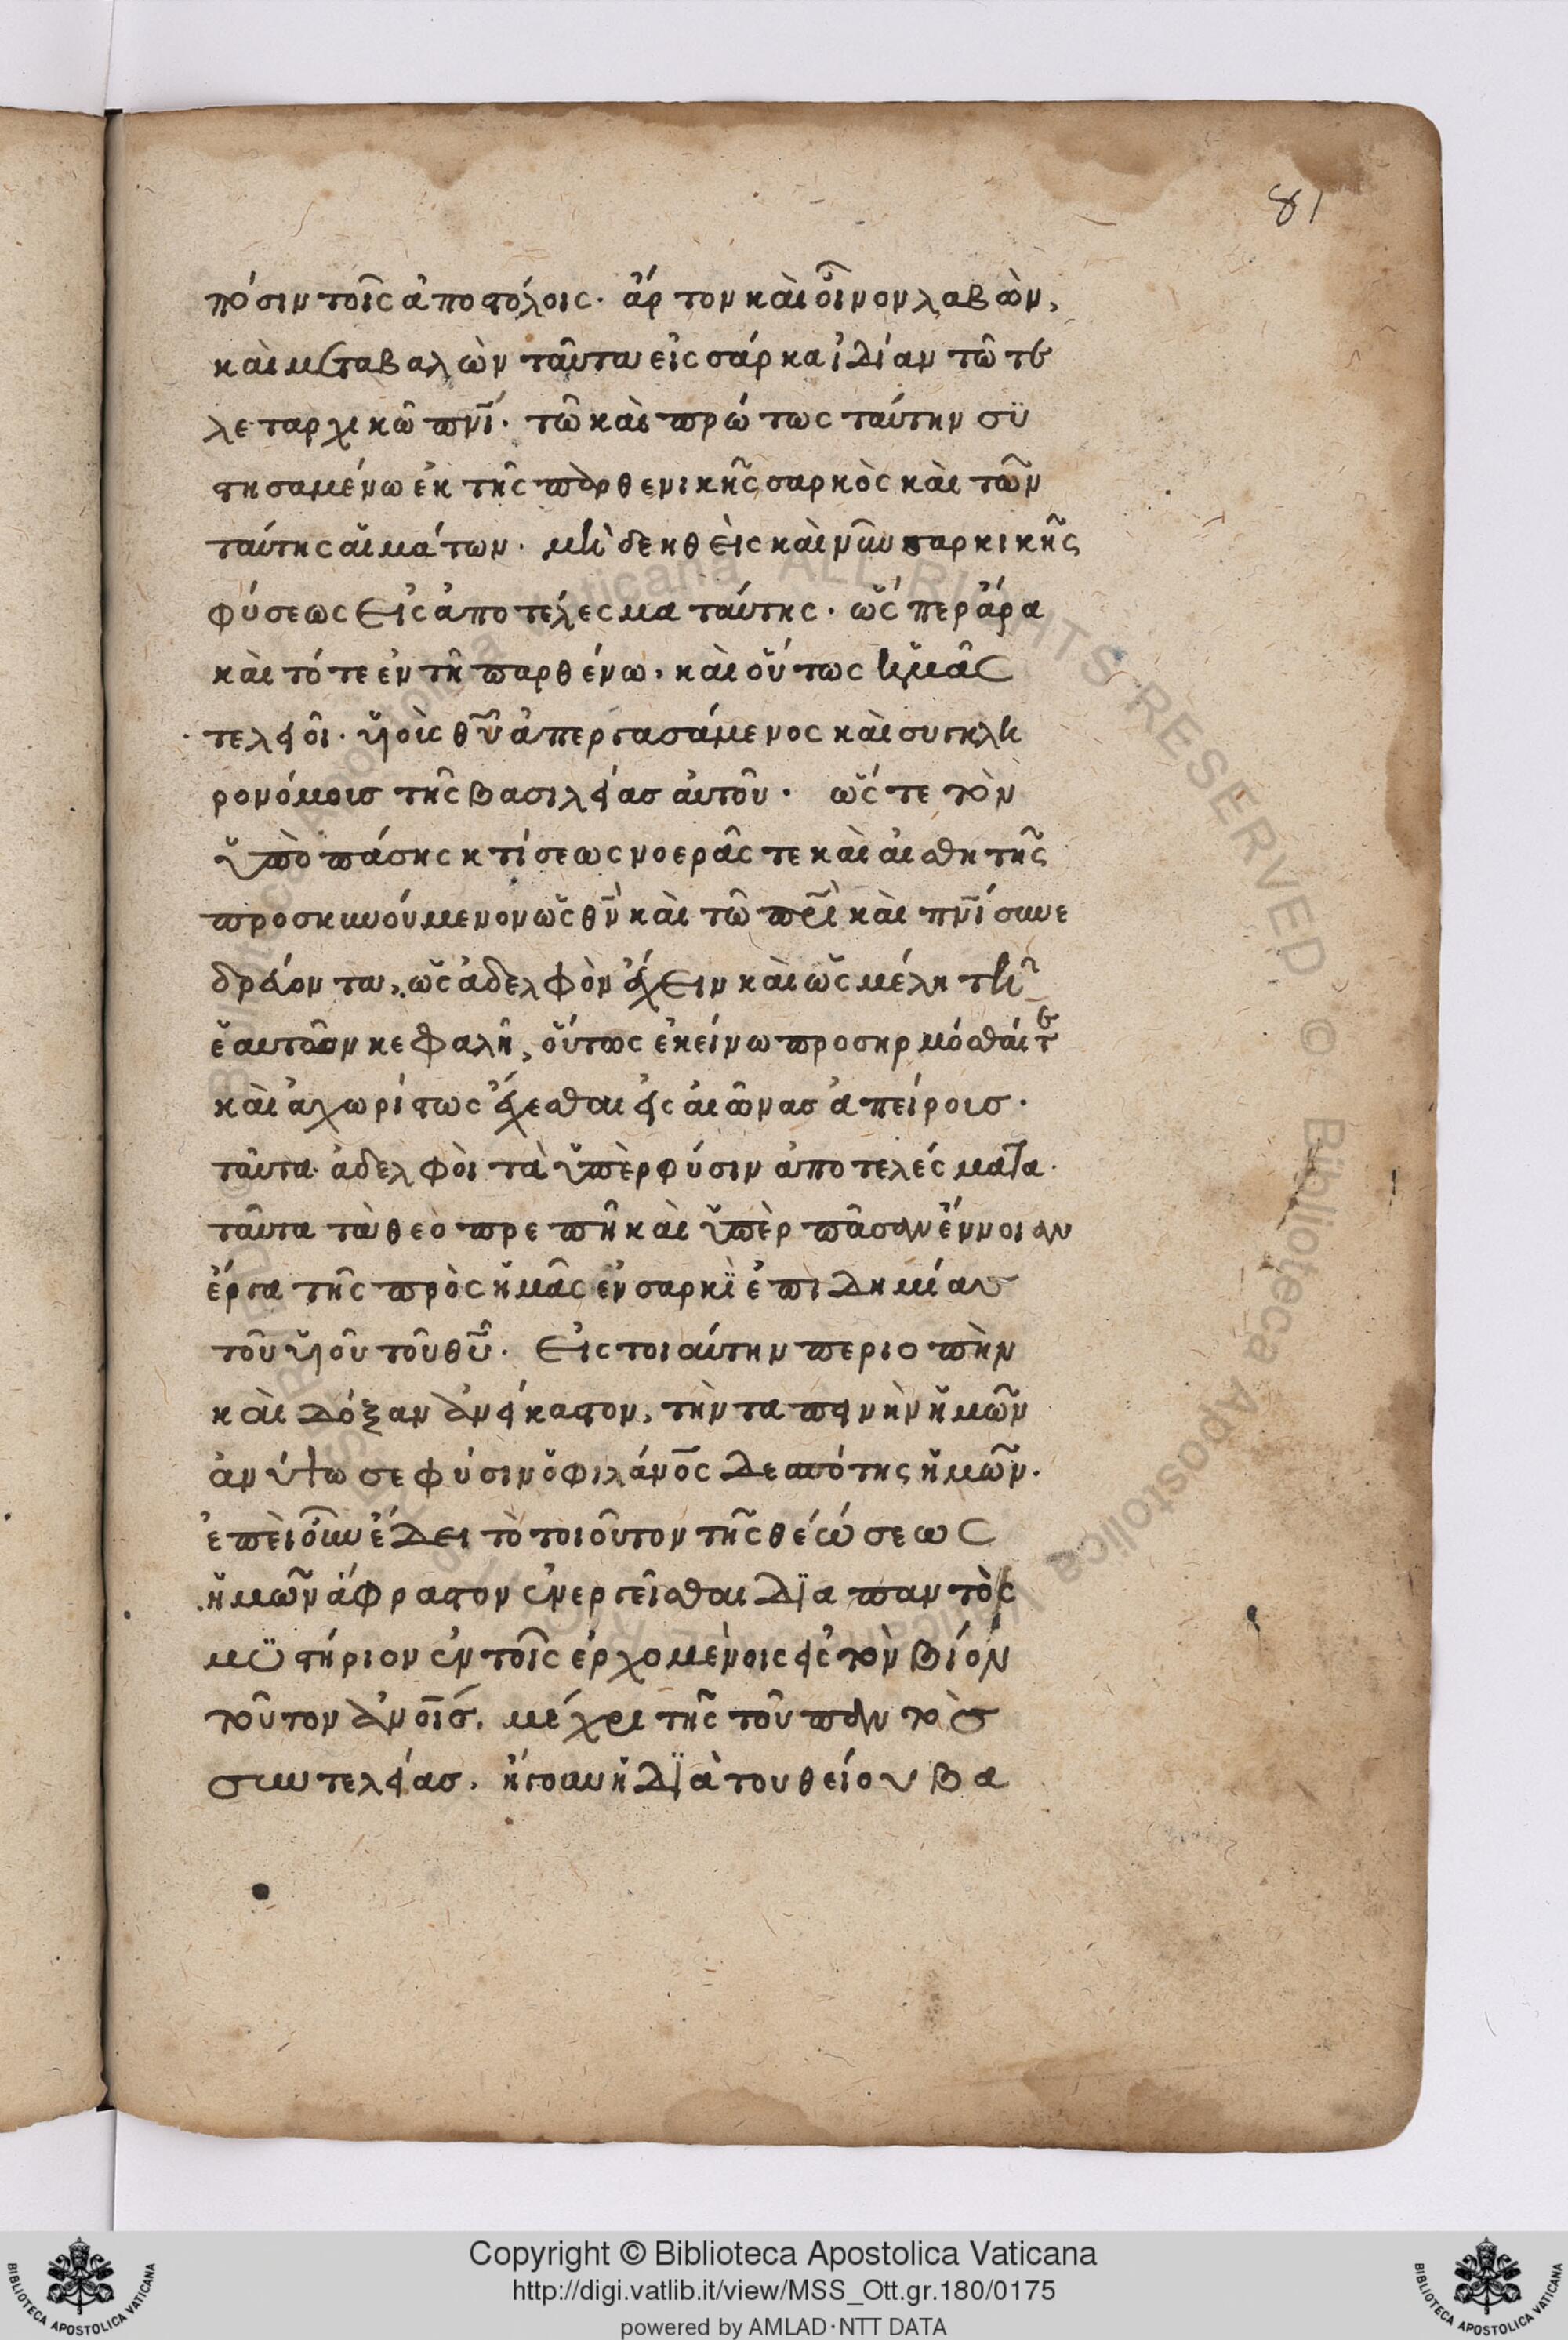 81
πόσιν τοῖς ἀποστόλοις· ἄρτον καὶ οἶνον λαβὼν,
καὶ μεταβαλὼν ταῦτα εἰς σάρκα ἰδίαν τῶ τε
λεταρχικῶ πνι· τῶ καὶ πρώτως ταύτην συ
στησαμένω ἐκ τῆς παρθενικῆς σαρκὸς καὶ τῶν
ταύτης αἱμάτων· μὴ δεηθεὶς καὶ νῦν σαρκικῆς
φύσεως εἰς ἀποτέλεσμα ταύτης· ὥσπερ ἄρα
καὶ τότε ἐν τῆ παρθένω, καὶ οὕτως ἡμᾶς
τελεῖοι· υἱοὺς θυ ἀπεργασάμενος καὶ συγκλη
ρονόμους τῆς βασιλείας αὐτοῦ· ὥστε τὸν
ὑπὸ πάσης κτίσεως νοερᾶς τε καὶ αἰσθητῆς
προσκυνούμενον ὡς θν καὶ τῶ πρι καὶ πνι συνε
δρεύοντα, ὡς ἀδελφὸν ἔχειν καὶ ὡς μέλη τῆ
ἑαυτῶν κεφαλῆ, οὕτως ἐκείνω προσηρμόσθαί τε
καὶ ἀχωρίστως ἔχεσθαι εἰς αἰῶνας ἀπείρους·
ταῦτα ἀδελφοὶ τὰ ὑπὲρ φύσιν ἀποτελέσματα·
ταῦτα τὰ θεοπρεπῆ καὶ ὑπὲρ πᾶσαν ἔννοιαν
ἔργα τῆς πρὸς ἡμᾶς ἐν σαρκὶ ἐπιδημίας
τοῦ υἱοῦ τοῦ θυ· εἰς τοιαύτην περιοπὴν
καὶ δόξαν ἀνείκαστον, τὴν ταπεινὴν ἡμῶν
ἀνύψωσε φύσιν ὁ φιλάνος δεσπότης ἡμῶν·
ἐπεὶ οὖν ἔδει τὸ τοιοῦτον τῆς θεώσεως
ἡμῶν ἄφραστον ἐνεργεῖσθαι διὰ παντὸς
μυστήριον ἐν τοῖς ἐρχομένοις εἰς τὸν βίον
τοῦτον ἀνοις, μέχρι τῆς τοῦ παντὸς
συντελείας, ἤγουν ἡ διὰ του θείου βα
Copyright © Biblioteca Apostolica Vaticana
http://digi.vatlib.it/view/MSS_Ott.gr.180/0175
powered by AMLAD·NTT DATA